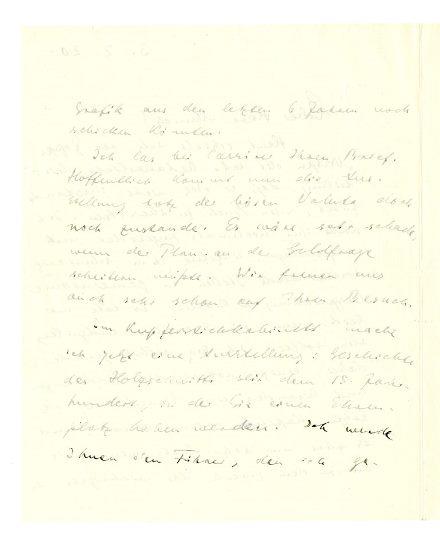 Grafik aus den letzten 6 Jahren noch
schicken könnten.
Ich las bei Carrière Ihren Brief.
Hoffentlich kommt nun die Aus-
stellung trotz der bösen Valuta doch
noch zustande. Es wäre sehr schade,
wenn der Plan an der Geldfrage
scheitern müsste. Wir freuen uns
auch sehr schon auf Ihren Besuch.
Im Kupferstichkabinett mache
ich jetzt eine Ausstellung: Geschichte
des Holzschnitts seit dem 15. Jahr-
hundert, in der Sie einen Ehren-
platz haben werden. Ich werde
Ihnen den Führer, den ich ge-